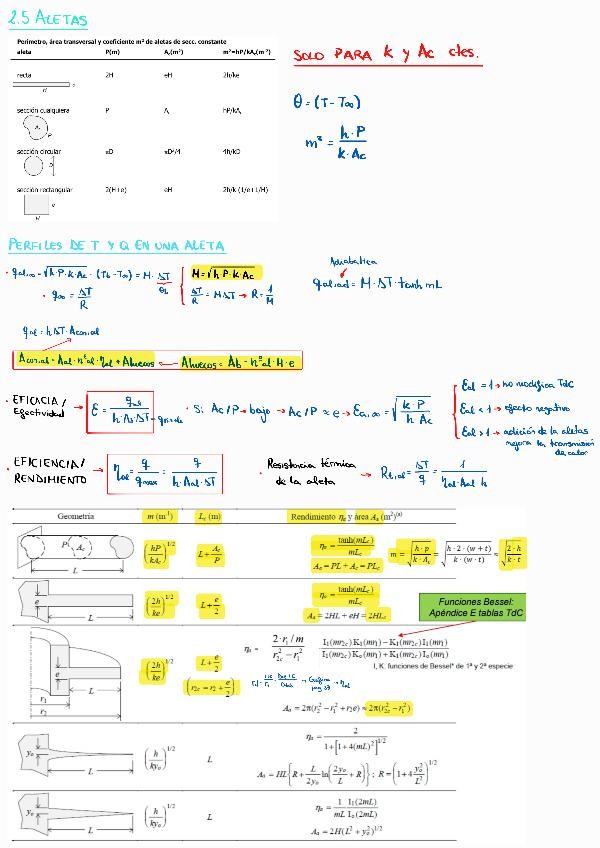 2.5 ALETAS
Perímetro, área transversal y coeficiente m² de aletas de secc. constante
aleta P(m) Ac(m²) m²=hP/kAc(m⁻²)
recta 2H eH 2h/ke
H e
sección cualquiera P Ac hP/kAc
Ac P
sección circular πD πD²/4 4h/kD
D
sección rectangular 2(H+e) eH 2h/k (1/e+1/H)
e
H
SOLO PARA K y Ac ctes.
θ = (T - T∞)
m² = h·P / k·Ac
PERFILES DE T y Q EN UNA ALETA
· qal,∞ = √h·P·k·Ac · (Tb - T∞) = M · ΔT
θb
M = √h·P·k·Ac
· q∞ = ΔT / R
ΔT / R = M·ΔT → R = 1 / M
Adiabática
qal,ad = M · ΔT · tanh mL
qal = h·ΔT · Acon,al
Acon,al = Aal · nºal · ηal + Ahuecos ← Ahuecos = Ab - nºal · H · e
· EFICACIA / Efectividad → ε = qal / h·Ab·ΔT
· Si Ac/P → bajo → Ac/P ≈ e → εal,∞ = √k·P / h·Ac
εal = 1 → no modifica TdC
εal < 1 → efecto negativo
εal > 1 → adición de la aletas mejora la transmisión de calor
· EFICIENCIA / RENDIMIENTO → ηal = q / qmax = q / h·Aal·ΔT
· Resistencia térmica de la aleta → Rt,al = ΔT / q = 1 / ηal·Aal·h
Geometría m (m⁻¹) Lc (m) Rendimiento ηa y área Aa (m²)⁽ᵃ⁾
P Ac L
(hP / kAc)^1/2 L + Ac / P ηa = tanh(mLc) / mLc
Aa = PL + Ac = PLc
m = √h·p / k·Ac = √h·2·(w+t) / k·(w·t) ≈ √2·h / k·t
e L
(2h / ke)^1/2 L + e / 2 ηa = tanh(mLc) / mLc
Aa = 2HL + eH = 2HLc
Funciones Bessel:
Apéndice E tablas TdC
e L r₁ r₂
(2h / ke)^1/2 L + e / 2
(r2c = r2 + e / 2)
ηa = 2·r₁/m / r²2c − r²1 I₁(mr2c)K₁(mr₁) − K₁(mr2c)I₁(mr₁) / I₁(mr2c)K₀(mr₁) + K₁(mr2c)I₀(mr₁)
I, K: funciones de Bessel* de 1ª y 2ª especie
Aa = 2π(r²2 − r²1 + r2e) ≈ 2π(r²2c − r²1)
y₀ L
(h / ky₀)^1/2 L ηa = 2 / 1 + [1 + 4(mL)²]^1/2
Aa = HL{R + L / 2y₀ ln(2y₀ / L + R)} ; R = (1 + 4 y²₀ / L²)^1/2
y₀ L
(h / ky₀)^1/2 L ηa = 1 / mL I₁(2mL) / I₀(2mL)
Aa = 2H(L² + y²₀)^1/2